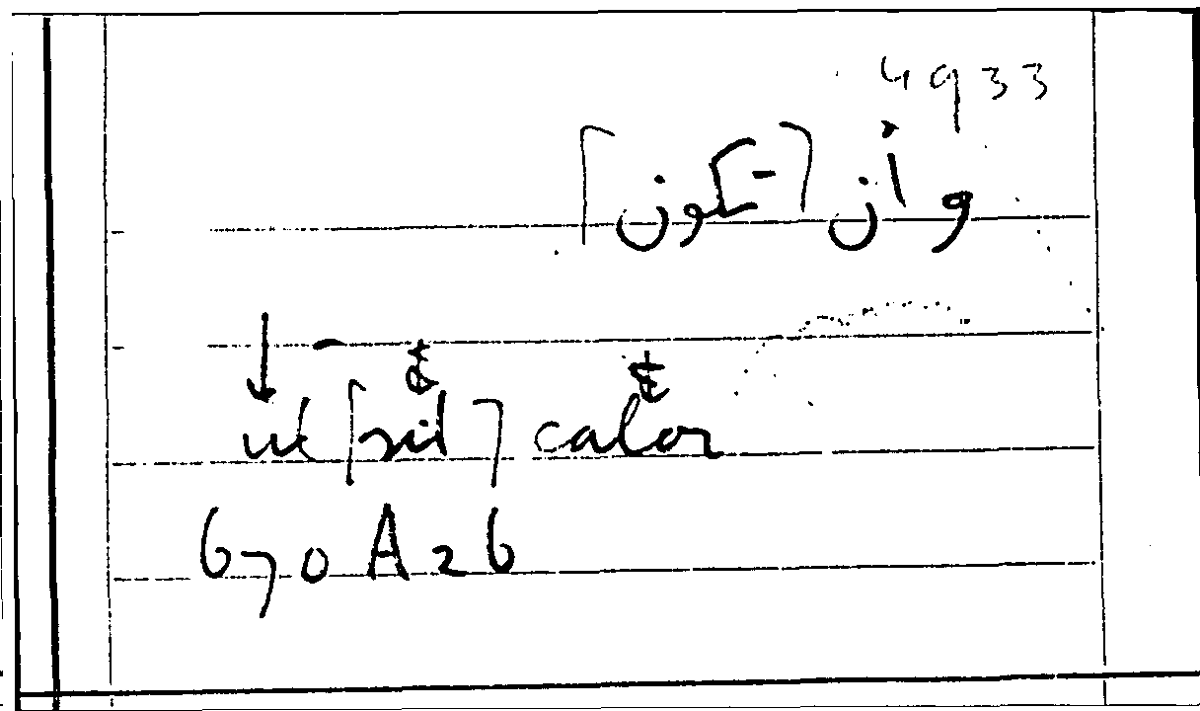 4933
وأن ⌈تكون⌉
ut ⌈sit⌉ calor
670 A 26